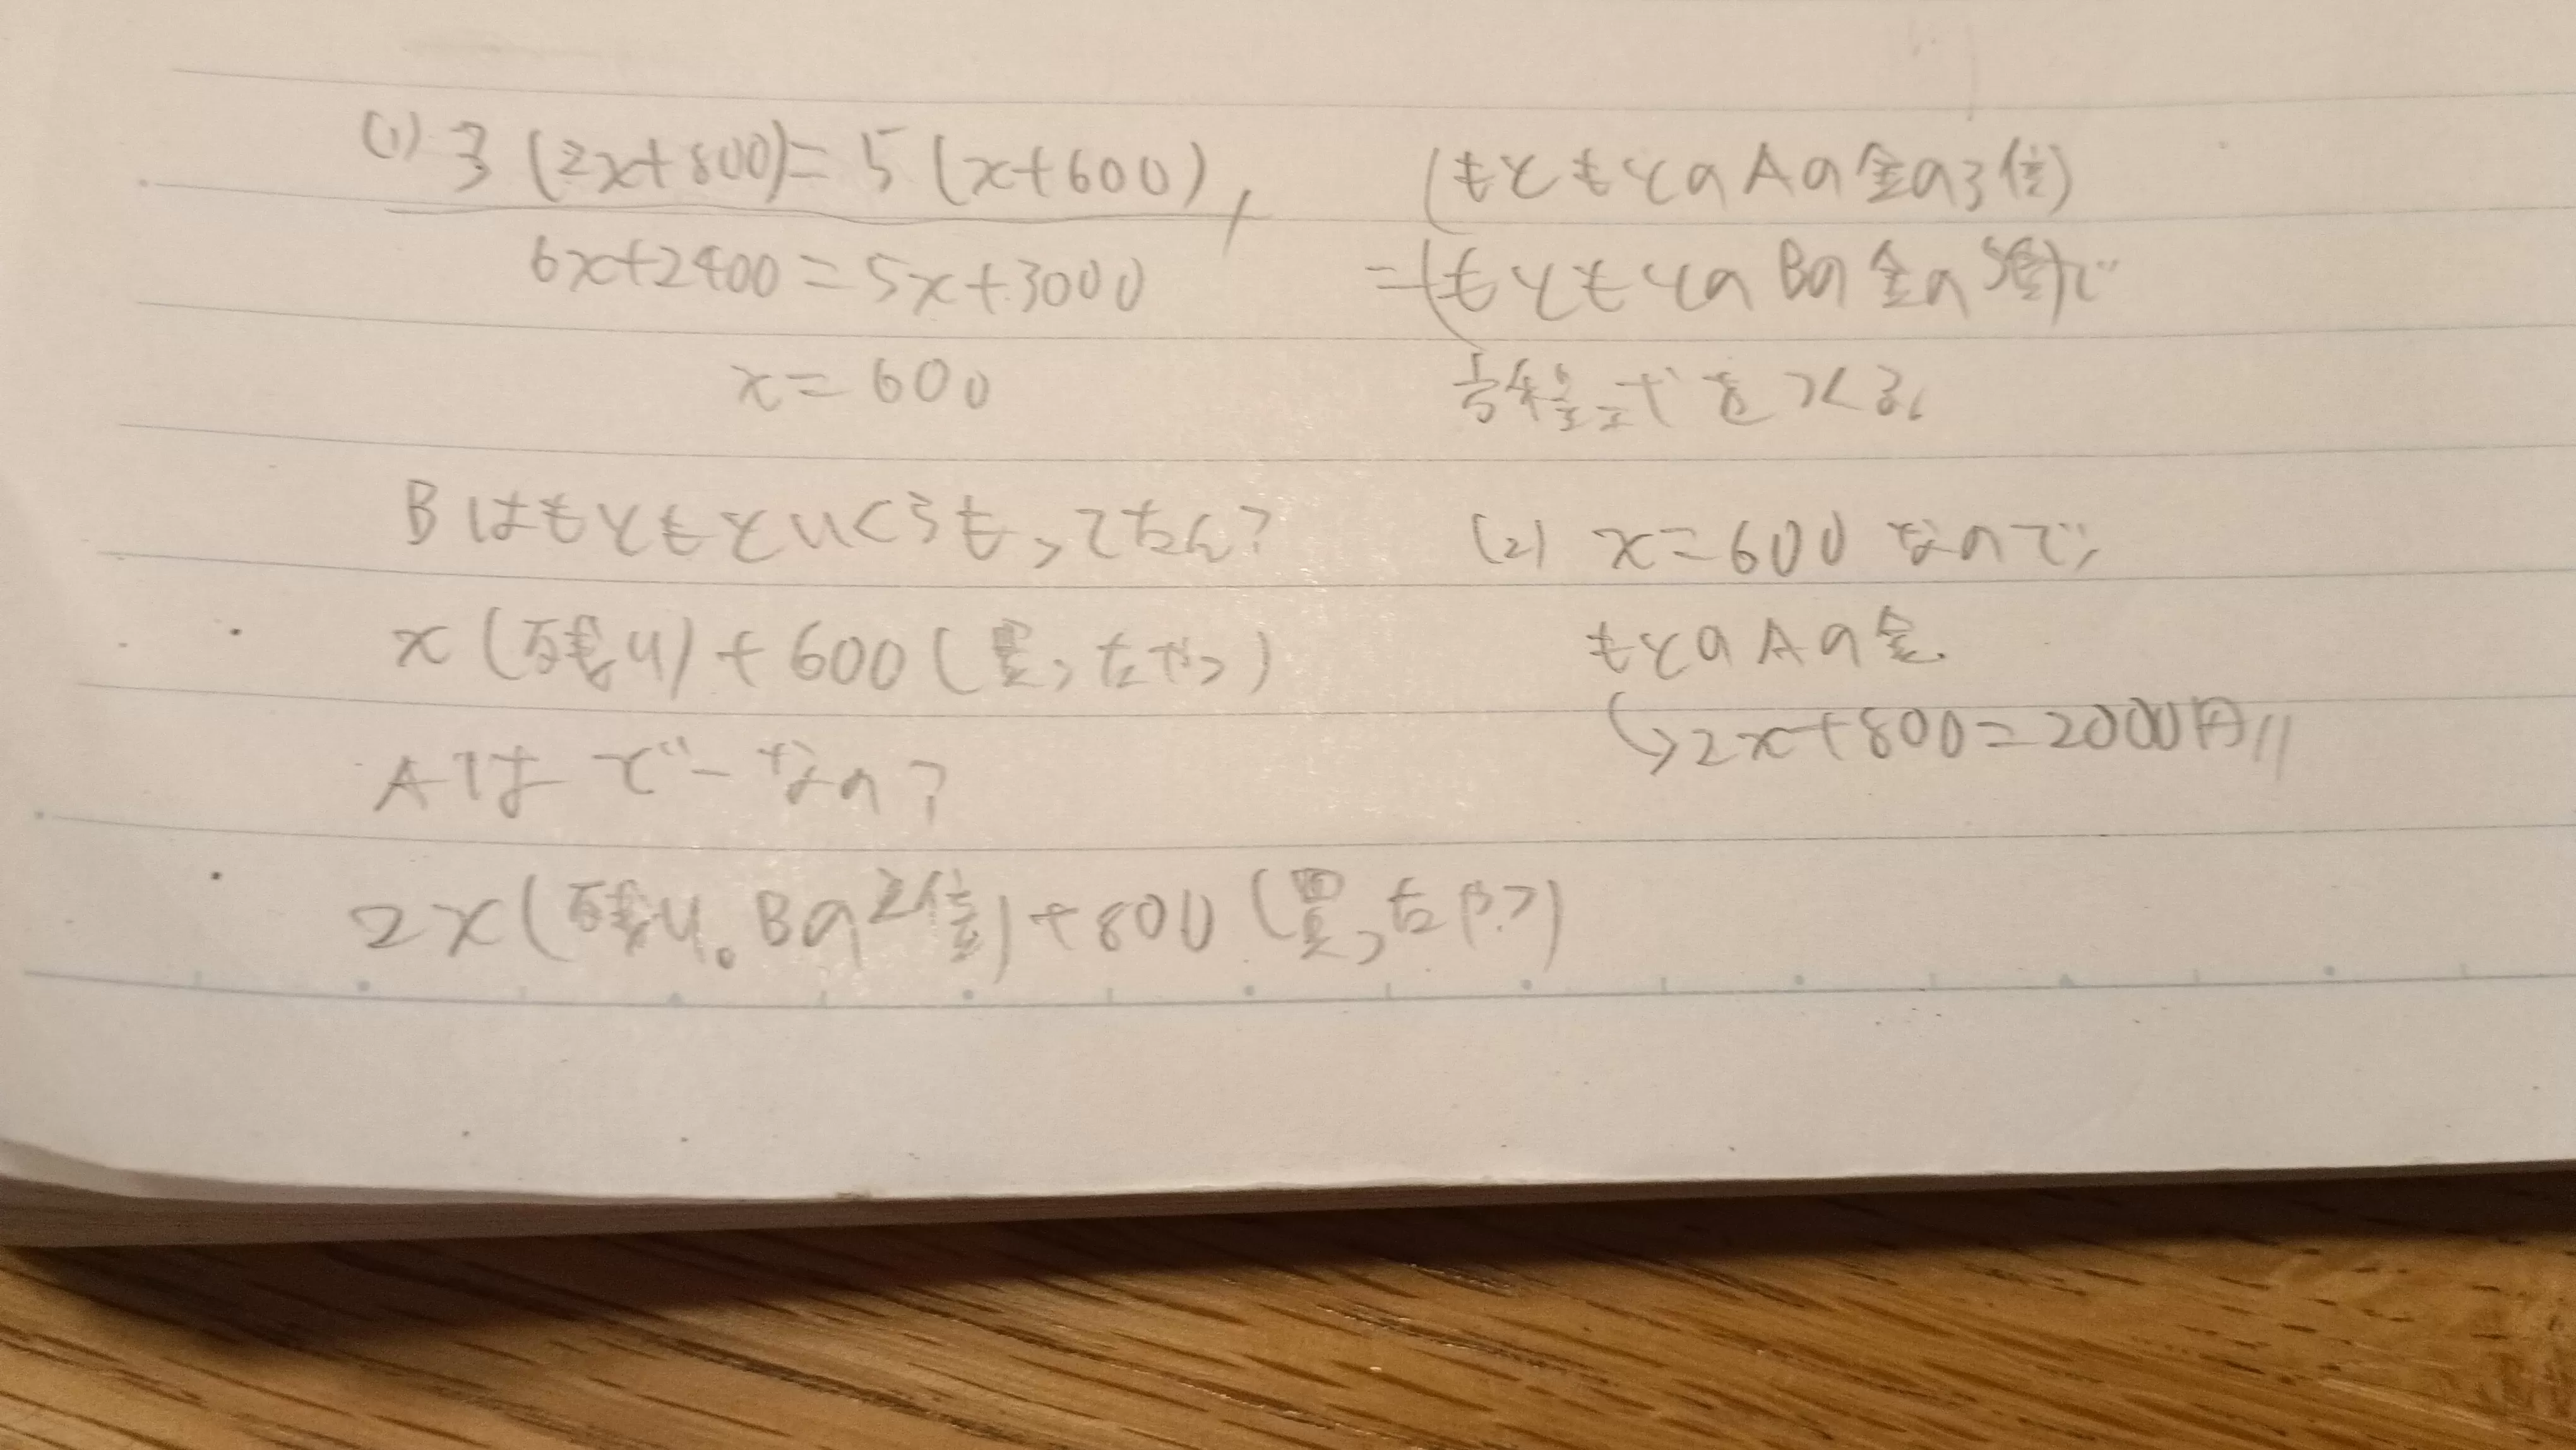 (1) 3(2x+800)=5(x+600),
6x+2400=5x+3000
x=600
Bはもともといくらもってたん?
x(残り)+600(買ったやつ)
Aはどーなの?
2x(残り。Bの2倍)+800(買ったやつ)
(もともとのAの金の3倍)
=(もともとのBの金の5倍)で
方程式をつくる。
(2) x=600なので、
もとのAの金。
↳2x+800=2000円//